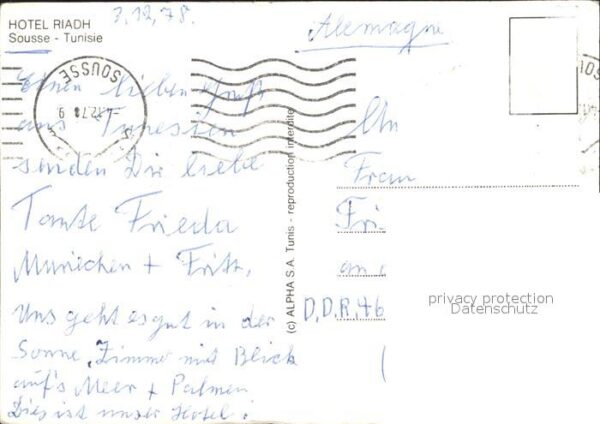 HOTEL RIADH
Sousse - Tunisie
3.12.78.
Allemagne
SOUSSE
Einen lieben Gruß
aus Tunesien
senden Dir liebe
Tante Frieda
+ Fritz.
Uns geht es gut in der
Sonne, Zimmer mit Blick
auf's Meer + Palmen
Dies ist unser Hotel!
(c) ALPHA S.A. Tunis - reproduction interdite
Frau
Fri
D.D.R. 46
privacy protection
Datenschutz